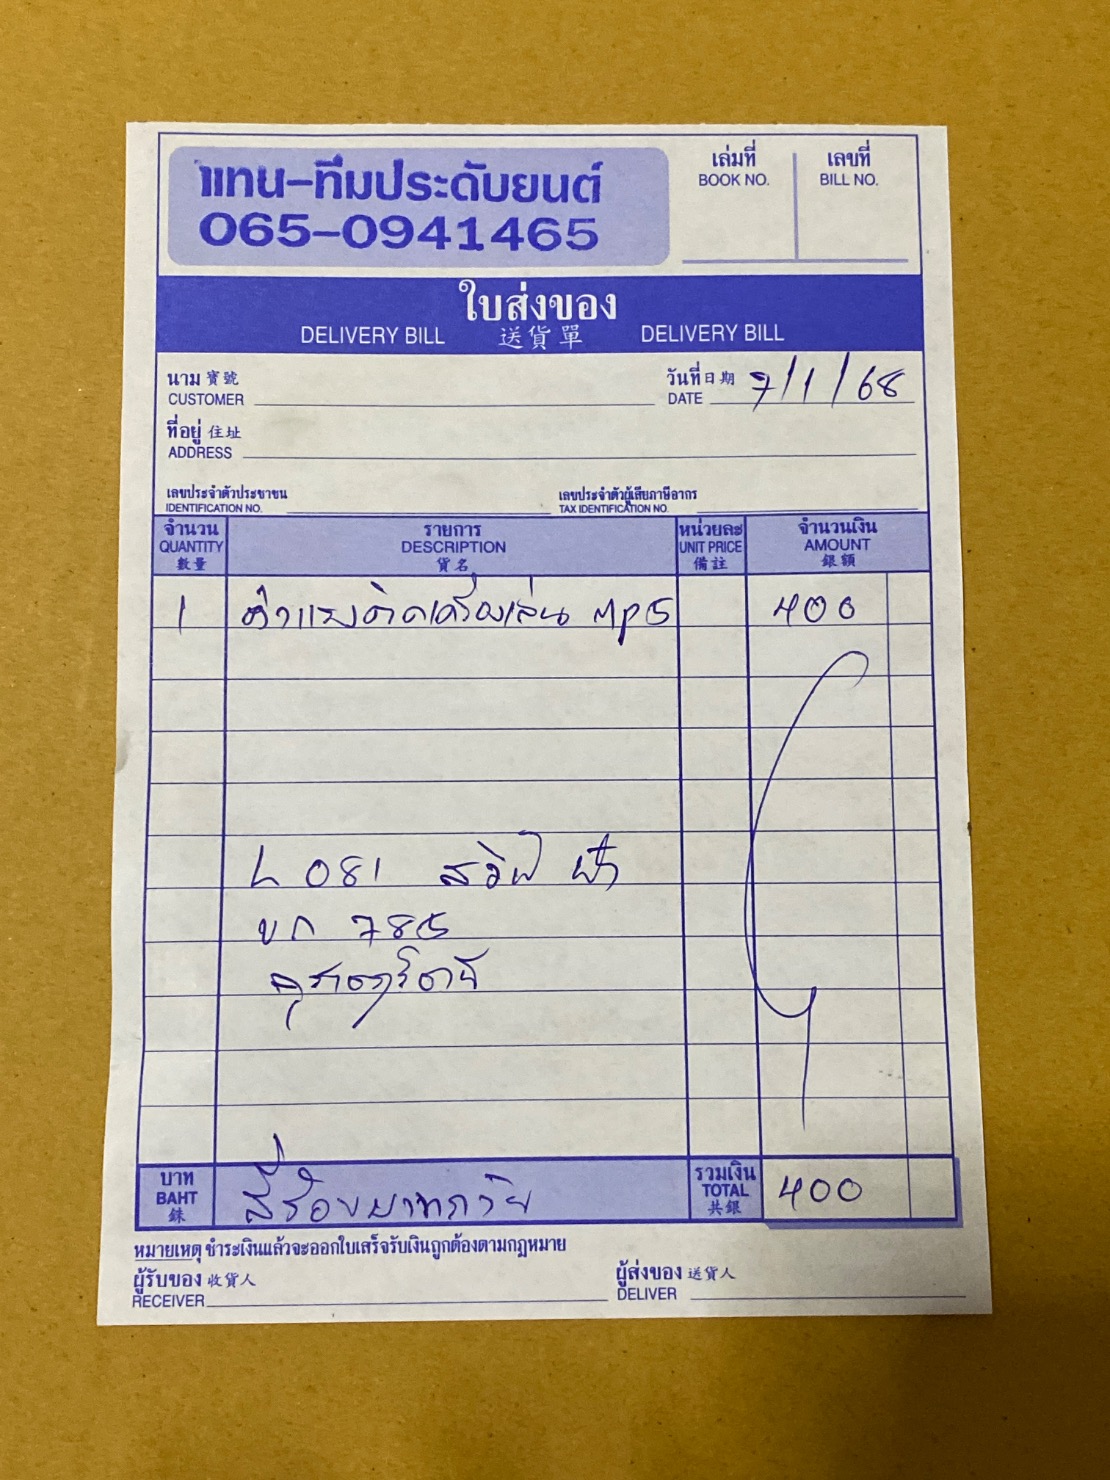 แทน-ทีมประดับยนต์
065-0941465
เล่มที่ เลขที่
BOOK NO. BILL NO.
ใบส่งของ
DELIVERY BILL 送貨單 DELIVERY BILL
นาม 寶號 วันที่ 日期
CUSTOMER DATE 7/1/68
ที่อยู่ 住址
ADDRESS
เลขประจำตัวประชาชน เลขประจำตัวผู้เสียภาษีอากร
IDENTIFICATION NO. TAX IDENTIFICATION NO.
จำนวน รายการ หน่วยละ จำนวนเงิน
QUANTITY DESCRIPTION UNIT PRICE AMOUNT
數量 貨名 備註 銀額
1 ค่าแรงติดเครื่องเล่น MP5 400
L 081 สวิฟ ฟ้า
ขก 785
สุราษฎร์ธานี
บาท รวมเงิน
BAHT สี่ร้อยบาทถ้วน TOTAL 400
銖 共銀
หมายเหตุ ชำระเงินแล้วจะออกใบเสร็จรับเงินถูกต้องตามกฎหมาย
ผู้รับของ 收貨人 ผู้ส่งของ 送貨人
RECEIVER DELIVER